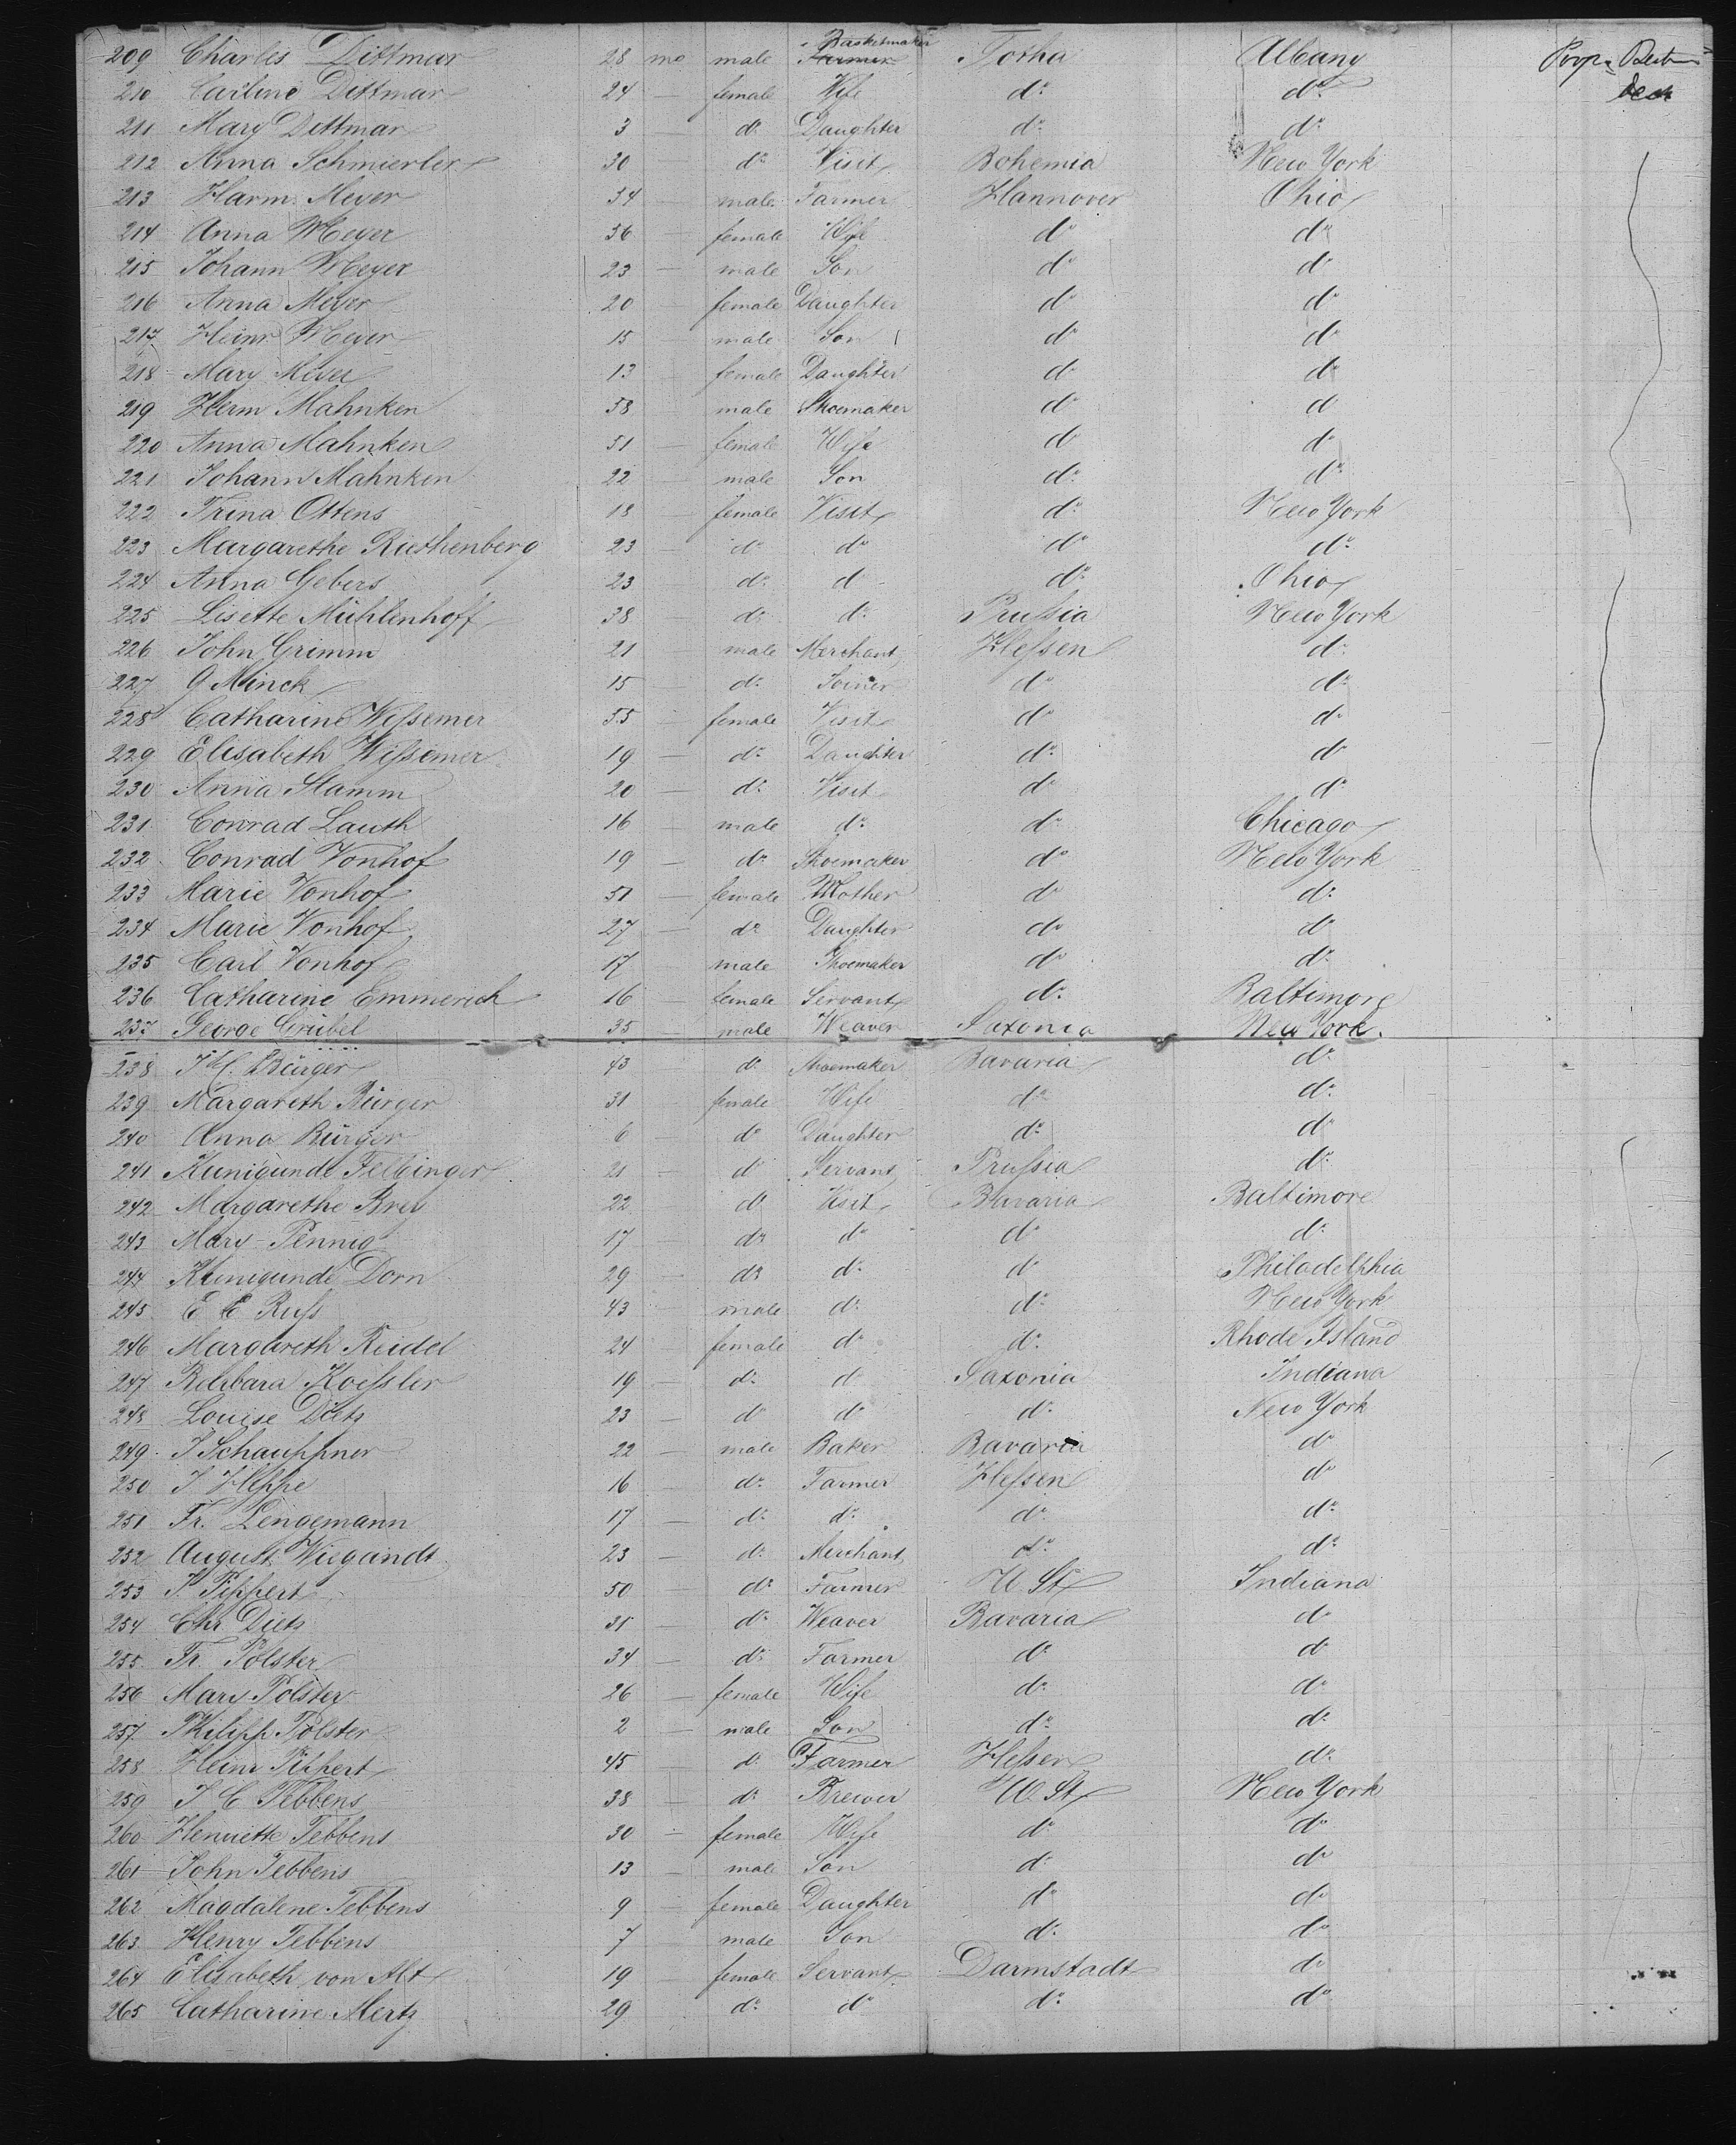 209 Charles Dittmar 28 mo male Basketmaker Farmer Gotha Albany
210 Carline Dittmar 24 — female Wife do do
211 Mary Dittmar 3 — do Daughter do do
212 Anna Schmierler 30 — do Visit Bohemia New York
213 Harm Meyer 54 — male Farmer Hannover Ohio
214 Anna Meyer 56 — female Wife do do
215 Johann Meyer 23 — male Son do do
216 Anna Meyer 20 — female Daughter do do
217 Heinr Meyer 15 male Son do do
218 Mary Meyer 13 — female Daughter do do
219 Herm Mahnken 58 male Shoemaker do do
220 Anna Mahnken 51 — female Wife do do
221 Johann Mahnken 22 — male Son do do
222 Trina Ottens 18 — female Visit do New York
223 Margarethe Riethenberg 23 — do do do do
224 Anna Gebers 23 do do do Ohio
225 Lisette Mühlenhoff 38 — do do Prussia New York
226 John Grimm 21 male Merchant Hessen do
227 G Minck 15 do Joiner do do
228 Catharine Wissemer 55 female Visit do do
229 Elisabeth Wissemer 19 — do Daughter do do
230 Anna Stamm 20 — do Visit do do
231 Conrad Lauth 16 — male do do Chicago
232 Conrad Vonhof 19 — do Shoemaker do New York
233 Marie Vonhof 51 — female Mother do do
234 Marie Vonhof 27 — do Daughter do do
235 Carl Vonhof 17 male Shoemaker do do
236 Catharine Emmerich 16 — female Servant do Baltimore
237 George Grübel 35 — male Weaver Saxonia New York
238 Bürger 43 do Shoemaker Bavaria do
239 Margareth Bürger 31 female Wife do do
240 Anna Bürger 6 do Daughter do do
241 Kunigunde Felbinger 21 — do Servant Prussia do
242 Margarethe Brey 22 do Visit Bavaria Baltimore
243 Mary Pennig 17 — do do do do
244 Kunigunde Dorn 29 — do do do Philadelphia
245 E E Russ 43 male do do New York
246 Margareth Reidel 24 — female do do Rhode Island
247 Barbara Koessler 19 — do do Saxonia Indiana
248 Louise Dietz 23 — do do do New York
249 J Schauppner 22 — male Baker Bavaria do
250 J Heppe 16 — do Farmer Hessen do
251 Fr. Lengemann 17 — do do do do
252 August Wiegandt 23 — do Merchant do do
253 Pippert 50 do Farmer U St Indiana
254 Chr Dietz 31 — do Weaver Bavaria do
255 Fr. Polster 34 — do Farmer do do
256 Mary Polster 26 — female Wife do do
257 Philipp Polster 2 — male Son do do
258 Heinr Pippert 45 — do Farmer Hessen do
259 J C Tebbens 38 — do Brewer U. St New York
260 Henriette Tebbens 30 — female Wife do do
261 John Tebbens 13 — male Son do do
262 Magdalene Tebbens 9 — female Daughter do do
263 Henry Tebbens 7 male Son do do
264 Elisabeth von Alt 19 — female Servant Darmstadt do
265 Catharine Mertz 29 do do do do